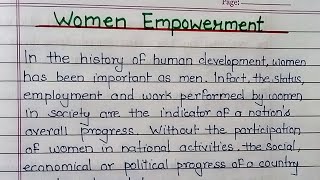 Page:
Women Empowerment
In the history of human development, women
has been important as men. Infact, the status,
employment and work performed by women
in society are the indicator of a nation's
overall progress. Without the participation
of women in national activities, the social,
economical or political progress of a country